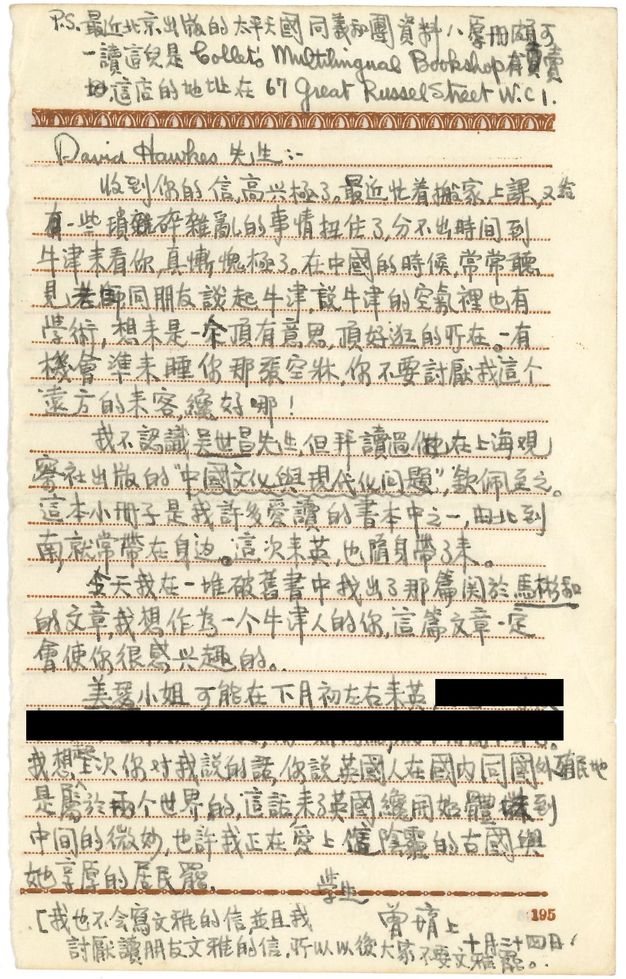 P.S. 最近北京出版的太平天國同義和團資料八厚冊頗可
一讀這兒是 Collet's Multilingual Bookshop 有賣
這店的地址在 67 Great Russel Street W.C 1.
David Hawkes 先生:-
收到你的信,高兴極了。最近忙着搬家上課,又給
一些瑣碎雜亂的事情扭住了,分不出時间到
牛津来看你,真慚愧極了。在中國的時候,常常聽
見老師同朋友談起牛津,說牛津的空氣裡也有
學術,想来是一个頂有意思,頂好逛的所在。一有
機會準来睡你那張空牀,你不要討厭我這个
遠方的来客,纔好哪!
我不認識吴世昌先生,但拜讀過他在上海观
察社出版的"中國文化與現代化问題",欽佩至之。
這本小冊子是我許多愛讀的書本中之一,由北到
南,就常帶在身边。這次来英,也隨身帶了来。
今天我在一堆破舊書中找出了那篇関於馬彬和
的文章,我想作為一个牛津人的你,這篇文章一定
會使你很感兴趣的。
美瑟小姐可能在下月初左右来英
我想起上次你对我說的話,你說英國人在國内同國外殖民地
是屬於兩个世界的,這話来了英國纔開始體味到
中间的微妙,也許我正在爱上這陰霾的古國與
她享厚的居民罷。
學生
曾 上
十月二十四日
195
[我也不会寫文雅的信並且我
討厭讀朋友文雅的信,所以以後大家不要文雅罷。